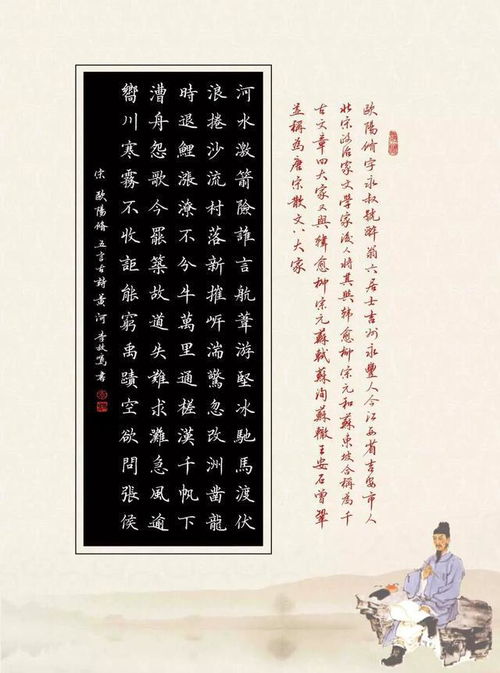 歐陽脩字永叔號醉翁六居士吉州永豐人今江西省吉安市人
北宋政治家文學家後人將其與韓愈柳宗元和蘇東坡合稱為千
古文章四大家又與韓愈柳宗元蘇軾蘇洵蘇轍王安石曾鞏
並稱為唐宋散文八大家
河水激箭險誰言航葦游堅冰馳馬渡伏
浪捲沙流村落新摧岸湍驚忽改洲鑿龍
時退鯉漲潦不分牛萬里通槎漢千帆下
漕舟怨歌今罷築故道失難求灘急風逾
嚮川寒霧不收詎能窮禹蹟空欲問張侯
宋 歐陽脩 五言古詩 黃河 李放鳴 書